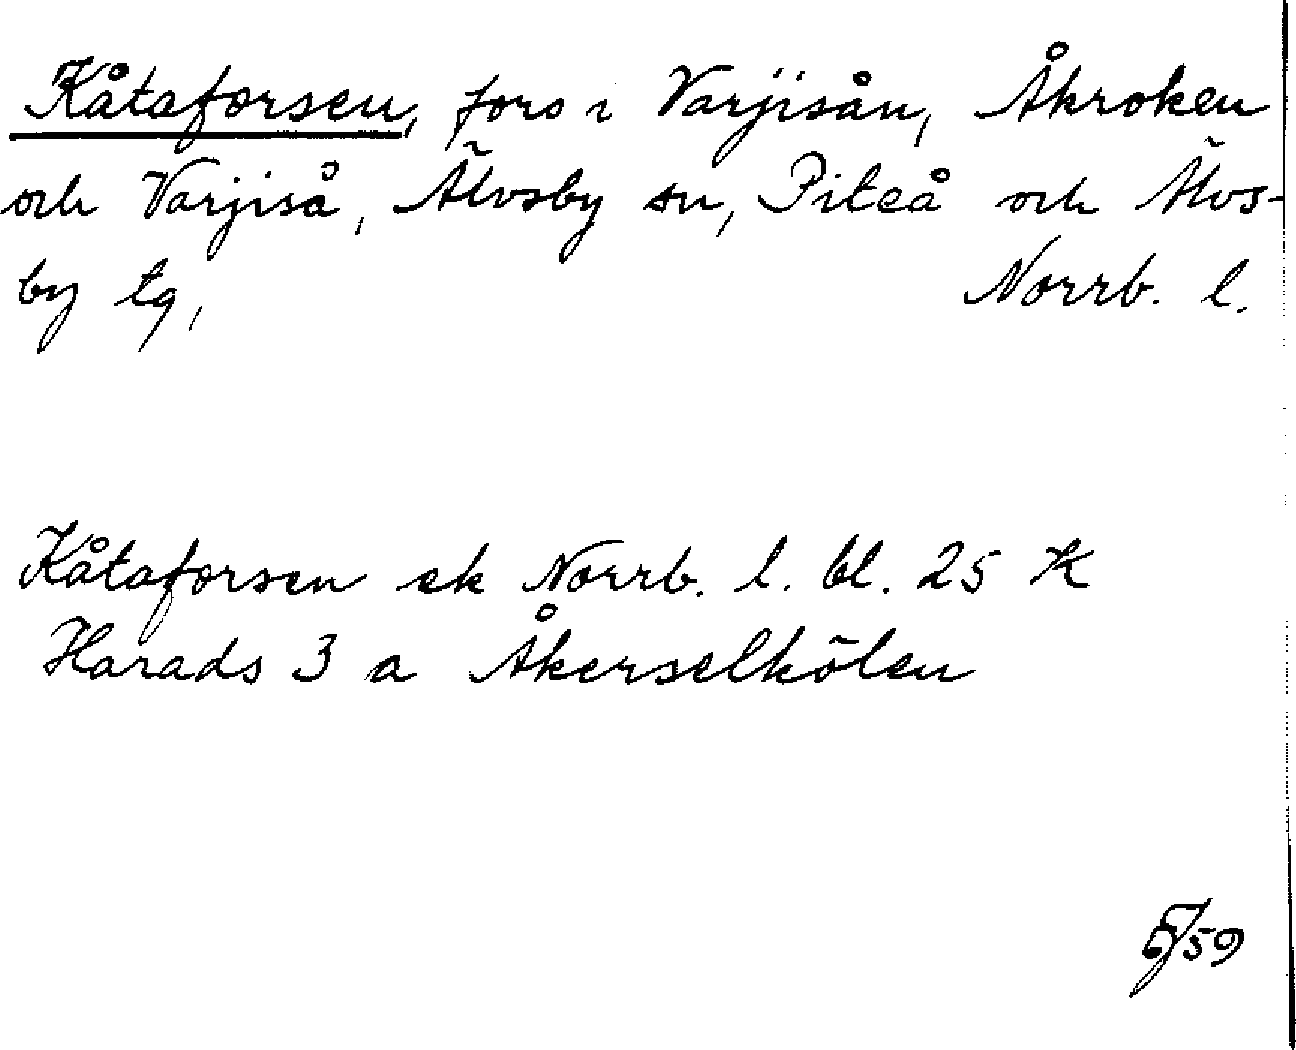 Kåtaforsen, fors i Varjisån, Åkroken
och Varjiså, Älvsby sn, Piteå och Älvs-
by tg, Norrb. l.
Kåtaforsen ek Norrb. l. bl. 25 K
Harads 3 a Åkerselkölen
59